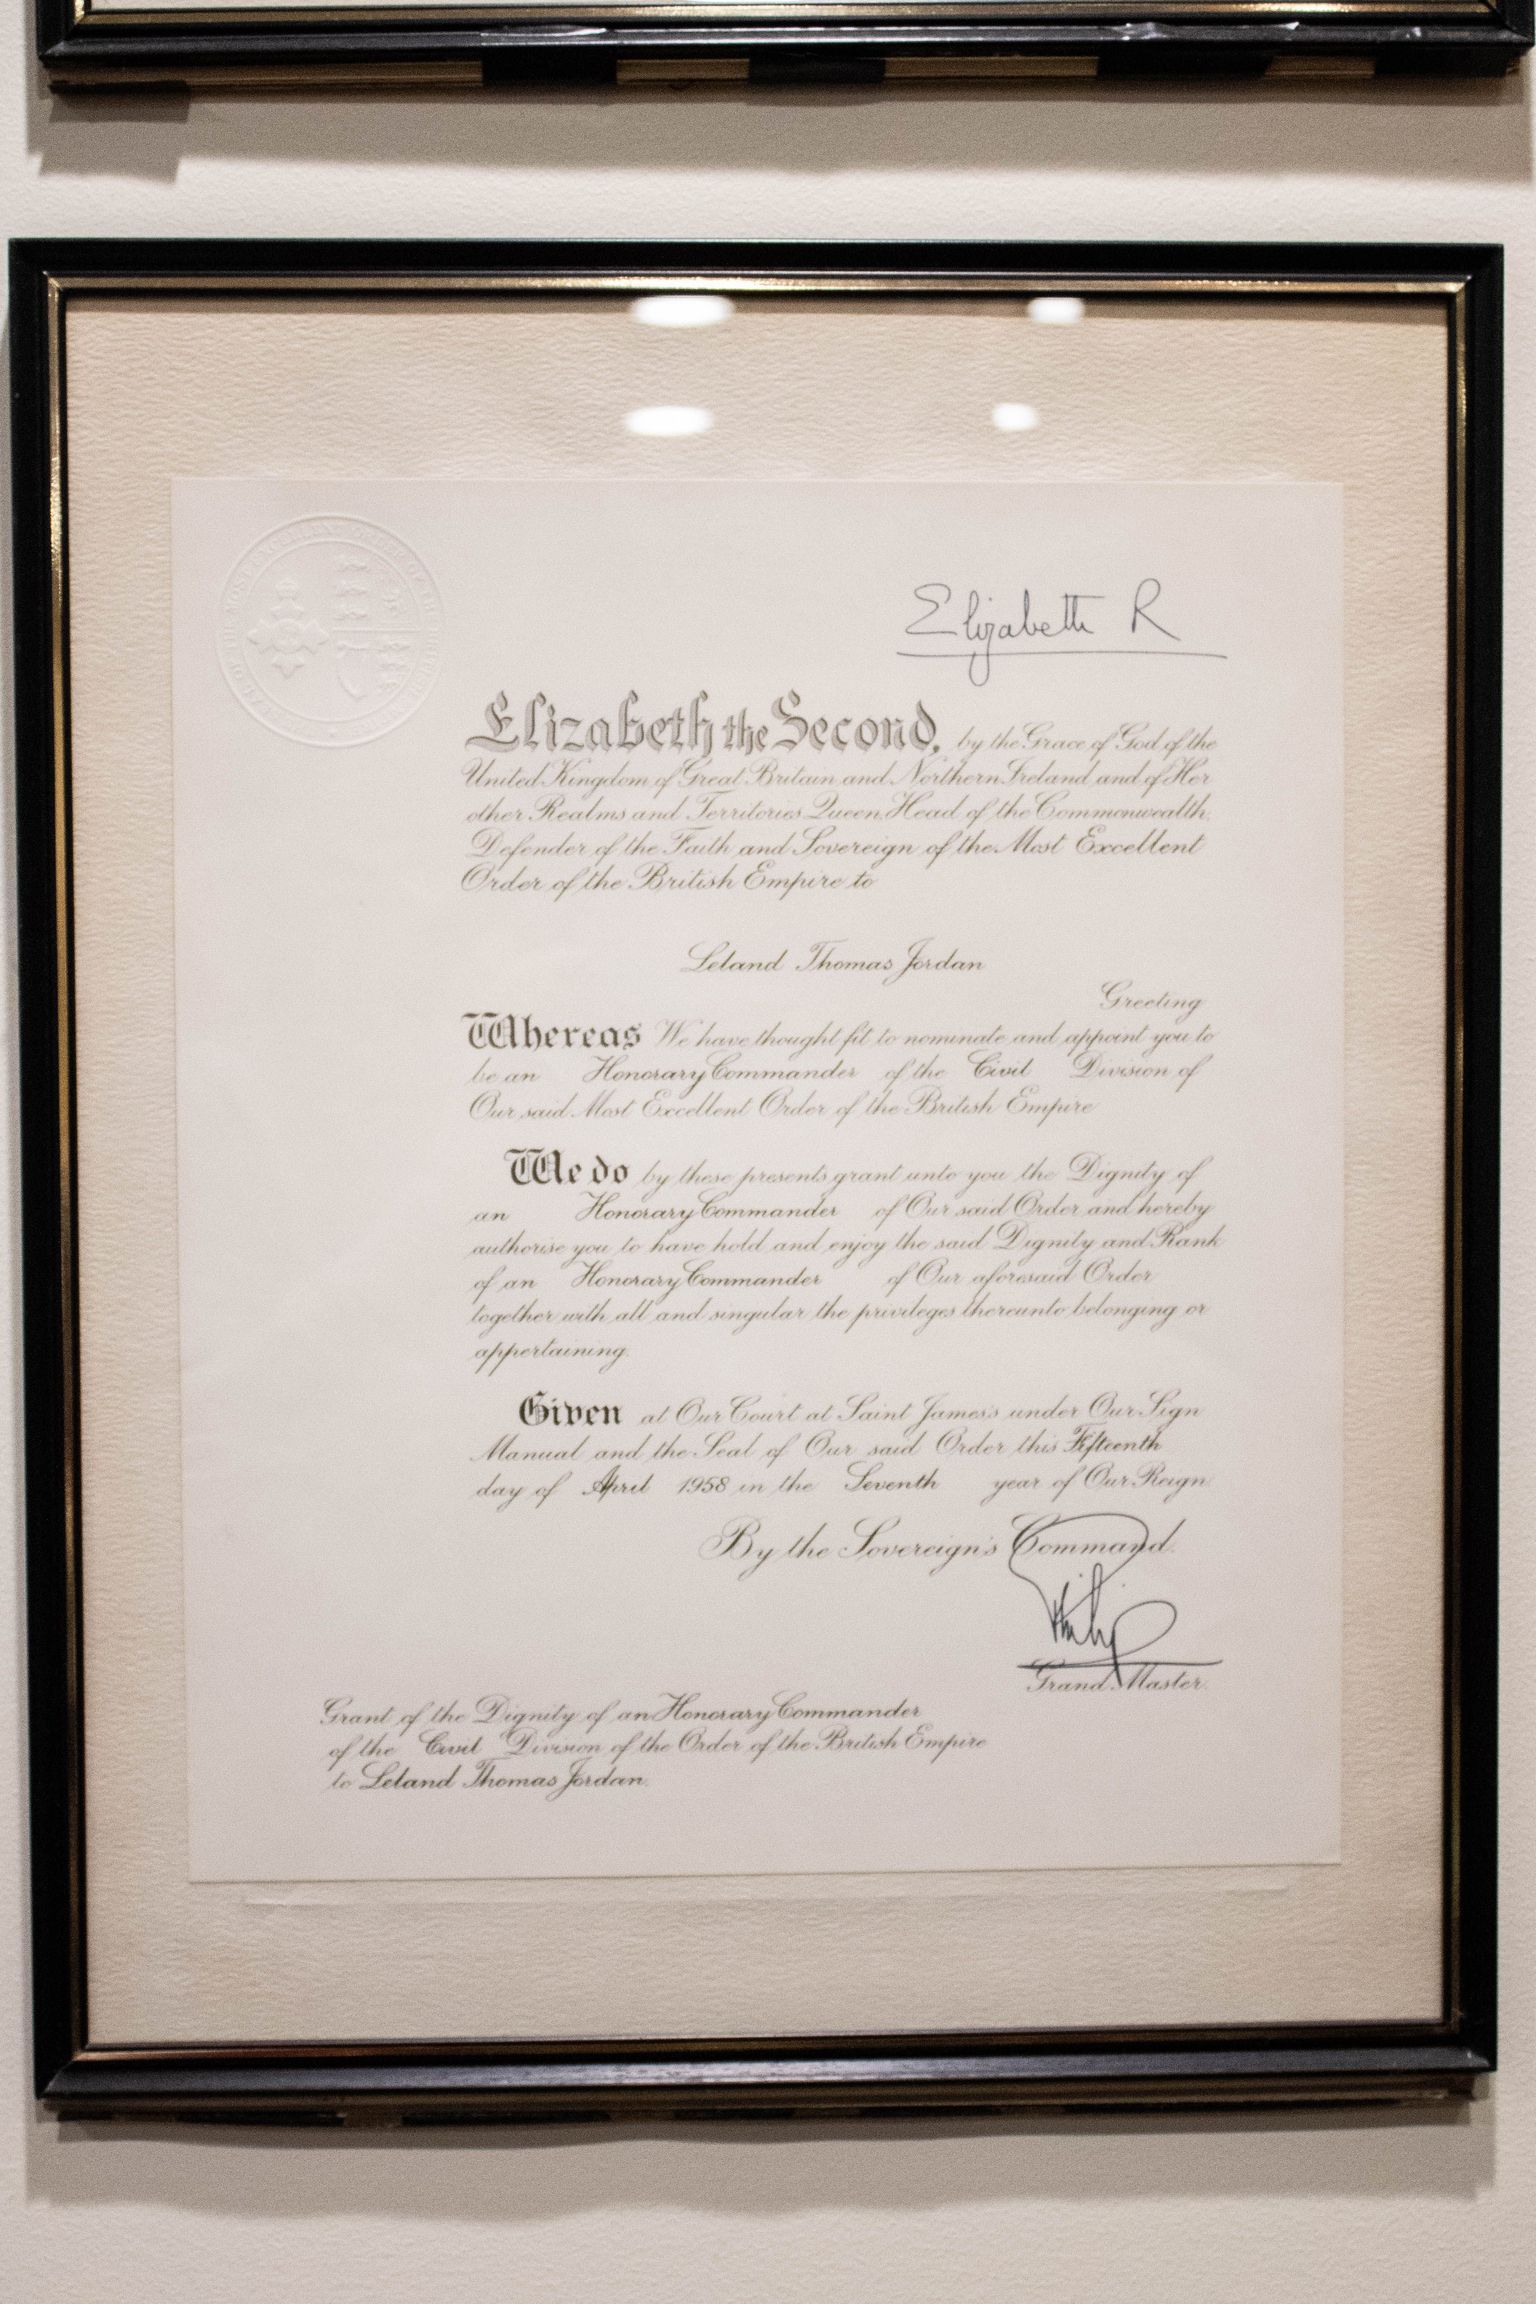 Elizabeth R
Elizabeth the Second, by the Grace of God of the
United Kingdom of Great Britain and Northern Ireland and of Her
other Realms and Territories Queen, Head of the Commonwealth,
Defender of the Faith and Sovereign of the Most Excellent
Order of the British Empire to
Leland Thomas Jordan
Greeting
Whereas We have thought fit to nominate and appoint you to
be an Honorary Commander of the Civil Division of
Our said Most Excellent Order of the British Empire
We do by these presents grant unto you the Dignity of
an Honorary Commander of Our said Order and hereby
authorise you to have hold and enjoy the said Dignity and Rank
of an Honorary Commander of Our aforesaid Order
together with all and singular the privileges thereunto belonging or
appertaining.
Given at Our Court at Saint James's under Our Sign
Manual and the Seal of Our said Order this Fifteenth
day of April 1958 in the Seventh year of Our Reign
By the Sovereign's Command.
Philip
Grand Master.
Grant of the Dignity of an Honorary Commander
of the Civil Division of the Order of the British Empire
to Leland Thomas Jordan.